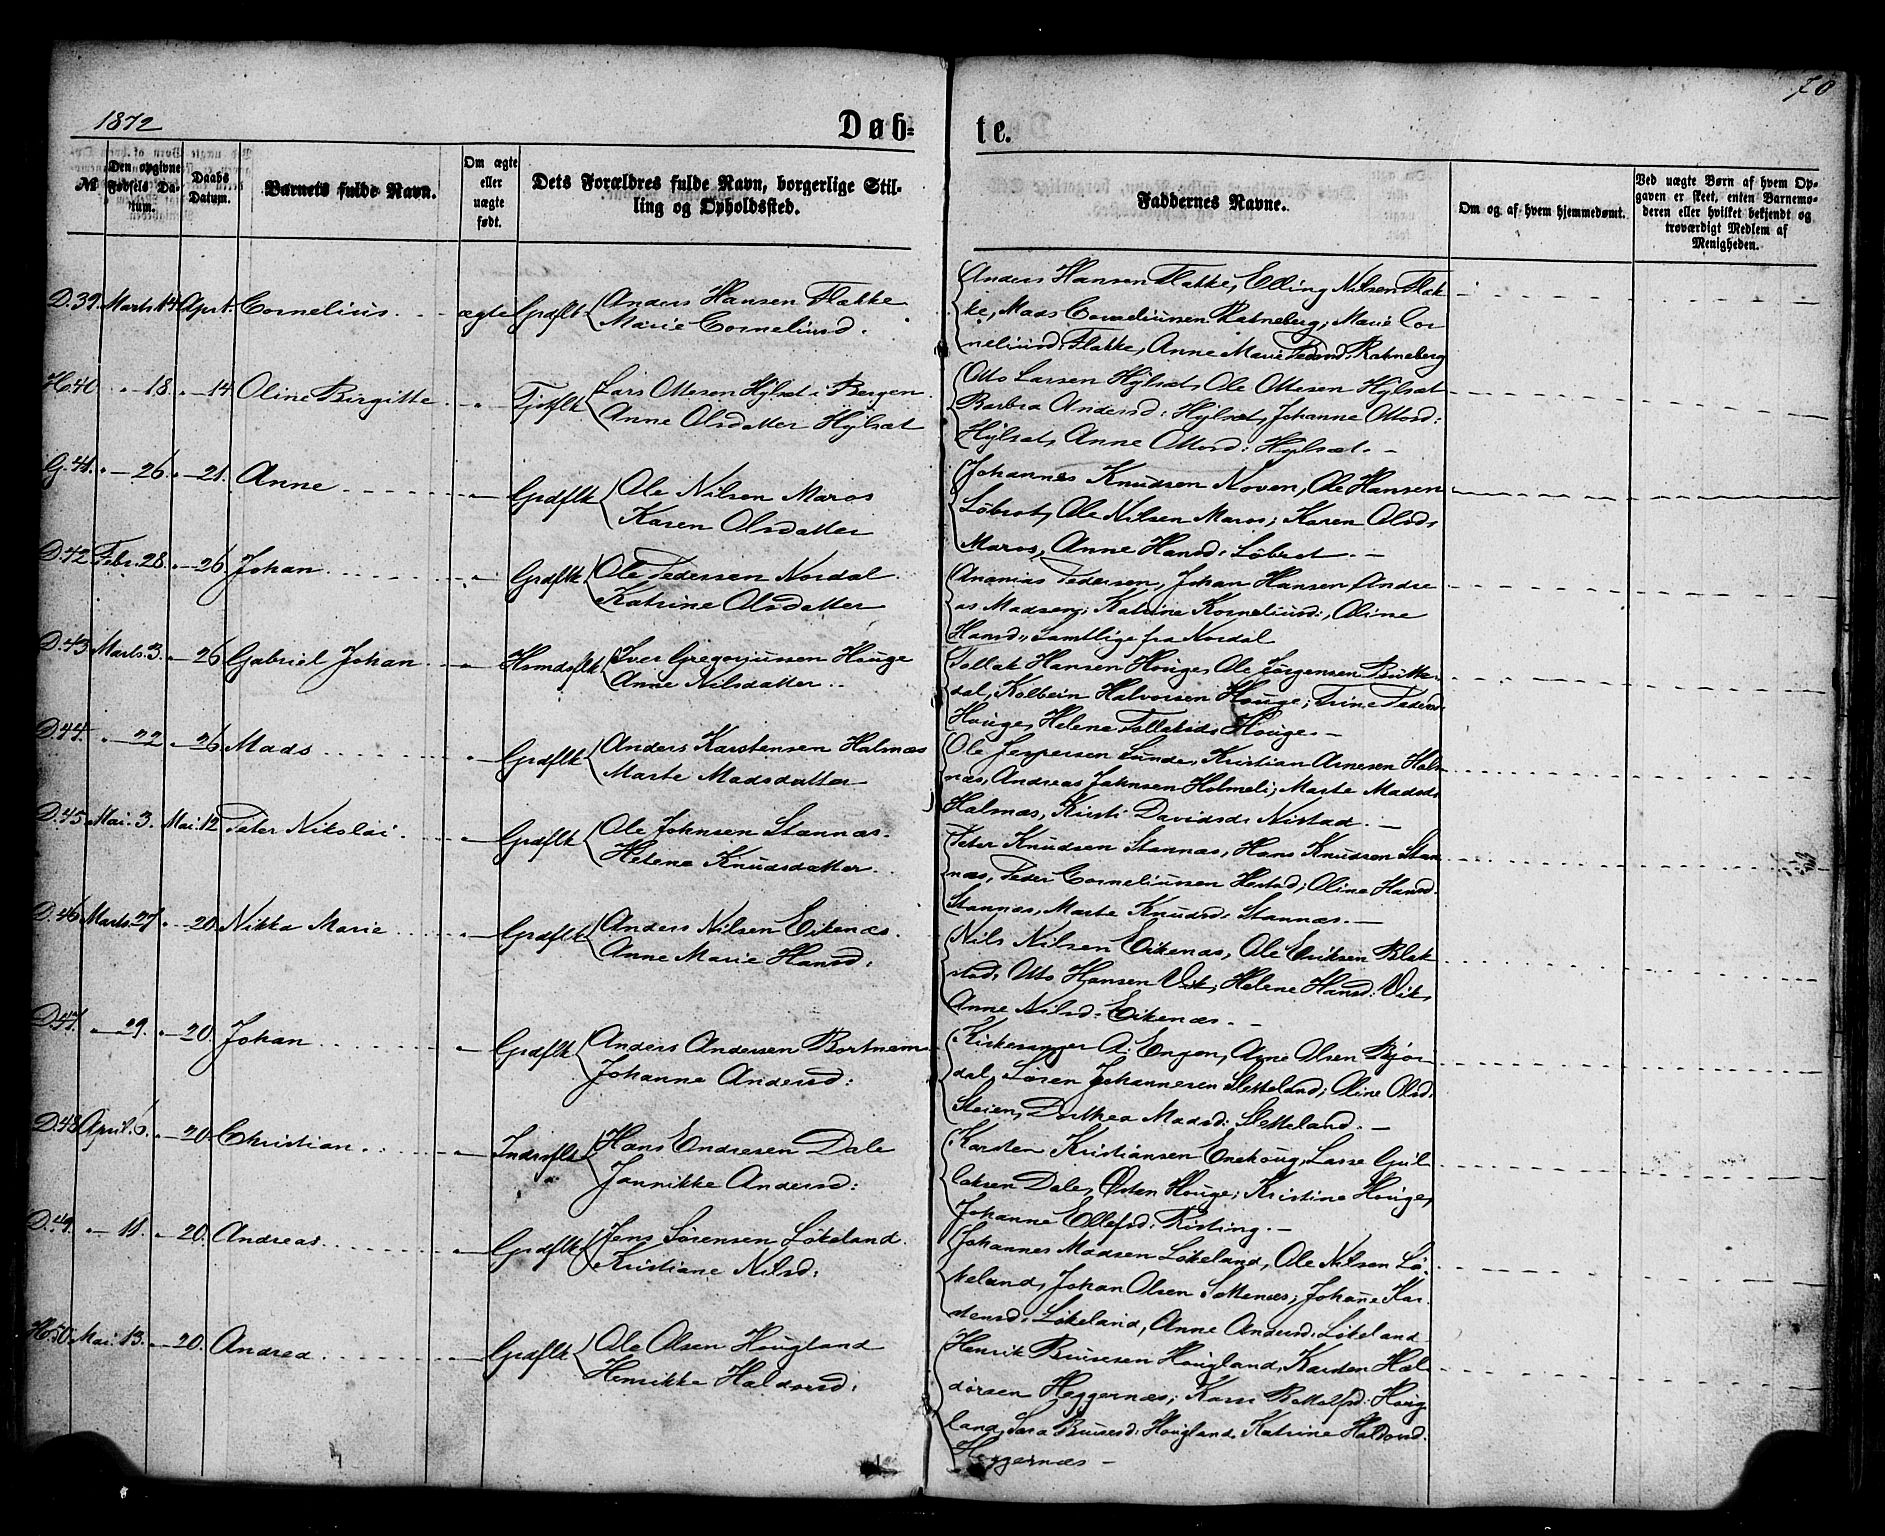 1872
70
Døb-
te.
№
Den opgivne Fødsels Datum.
Daabs Datum.
Barnets fulde Navn.
Om ægte eller uægte født.
Dets Forældres fulde Navn, borgerlige Stilling og Opholdssted.
Faddernes Navne.
Om og af hvem hjemmedøbt.
Ved uægte Børn af hvem Opgaven er skeet, enten Barnemoderen eller hvilket bekjendt og troværdigt Medlem af Menigheden.
D. 39. Marts 14 April 1. Cornelius. ægte Grdflk Anders Hansen Flakke
Marie Corneliusd.
Anders Hansen Flakke, Elling Nilsen Flak-
ke, Mads Corneliussen Ramneberg; Marie Cor-
neliusd. Flakke, Anne Marie Pedersd. Ramneberg
H. 40 " - 18. " - 14 Oline Birgitte Tjotflk Lars Ottesen Hylsæt i Bergen.
Anne Olsdatter Hylsæt
Otto Larsen Hylsæt, Ole Ottesen Hylsæt
Barbra Andersd: Hylsæt, Johanne Ottosd:
Hylsæt, Anne Ottosd: Hylsæt. -
G. 41. " - 26 " - 21. Anne Grdflk Ole Nilsen Maros
Karen Olsdatter
Johannes Knudsen Noven, Ole Hansen
Løbrot, Ole Nilsen Maros; Karen Olsd:
Maros, Anne Hansd: Løbrot. -
D. 42 Febr. 28. " - 26. Johan Grdflk Ole Pedersen Nordal
Katrine Olsdatter
Ananias Pedersen, Johan Hansen, Andre-
as Madsen; Katrine Korneliusd:, Oline
Hansd:, Samtlige fra Nordal
D. 43 Marts. 3. " - 26 Gabriel Johan Hsmdsflk Iver Gregoriussen Houge
Anne Nilsdatter
Tollak Hansen Houge, Ole Jørgensen Bukke-
dal, Kolbein Halvorsen Houge; Trine Pedersd.
Houge, Helene Tollaksd: Houge. -
D. 44. " - 22 " - 26 Mads Grdflk Anders Karstensen Halmæs
Marte Madsdatter
Ole Jespersen Sunde, Kristian Arnesen Halm-
næs, Andreas Johnsen Holmeli; Marte Madsd:
Halmæs, Kirsti Davidsd: Nistad. -
D. 45 Mai. 3. Mai. 12 Peter Nikolai. Grdflk Ole Johnsen Stannæs.
Helene Knudsdatter
Peter Knudsen Stannæs, Hans Knudsen Stan-
næs, Peder Corneliussen Hestad; Oline Hansd.
Stannæs, Marte Knudsd: Stannæs. -
D. 46 Marts. 27 " - 20. Nikka Marie Grdflk Anders Nilsen Eikenæs.
Anne Marie Hansd:
Nils Nilsen Eikenæs, Ole Eriksen Blak-
stad, Otto Hansen Vik; Helene Hansd: Vik,
Anne Nilsd: Eikenæs. -
D. 47. " - 29. " - 20. Johan Grdflk Anders Andersen Bortnem
Johanne Andersd:
Kirkesanger A: Engen, Arne Olsen Bjor-
dal, Søren Johannesen Sletteland; Oline Olsd:
Steien, Dorthea Madsd: Sletteland. -
D. 48 April. 6. " - 20. Christian Indrsflk Hans Endresen Dale
Jannikke Andersd:
Karsten Kristiansen Enehoug, Lasse Gul-
laksen Dale, Østen Houge; Kristine Houge,
Johanne Ellefsd: Risting. -
D. 49. " - 11. " - 20. Andreas Grdflk Jens Sørensen Løkeland.
Kristiane Nilsd:
Johannes Madsen Løkeland, Ole Nilsen Lø-
keland, Johan Olsen Sottenæs; Johane Kar-
stensd. Løkeland, Anne Andersd: Løkeland
H. 50 Mai. 13. " - 20. Andrea Grdflk Ole Olsen Hougland
Henrikke Haldorsd:
Henrik Bruesen Hougland, Karsten Hal-
dorsen Heggernæs; Kari Bottolfsd: Houg-
land, Sara Bruesd: Hougland, Katrine Haldorsd.
Heggernæs -